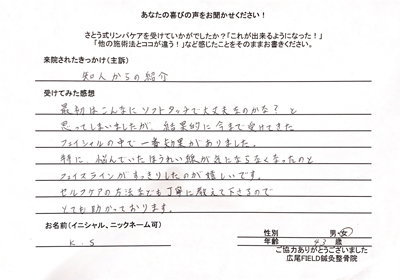 あなたの喜びの声をお聞かせください！
さとう式リンパケアを受けていかがでしたか？「これが出来るようになった！」
「他の施術法とココが違う！」など感じたことをそのままお書きください。
来院されたきっかけ（主訴）
知人からの紹介
受けてみた感想
最初はこんなにソフトタッチで大丈夫なのかな？と
思ってしまいましたが、結果的に今まで受けてきた
フェイシャルの中で一番効果がありました。
特に、悩んでいたほうれい線が気にならなくなったのと
フェイスラインがすっきりしたのが嬉しいです。
セルフケアの方法なども丁寧に教えて下さるので
とても助かっております。
お名前（イニシャル、ニックネーム可）
K.S
性別 男・女
年齢 43 歳
ご協力ありがとうございました
広尾FIELD鍼灸整骨院